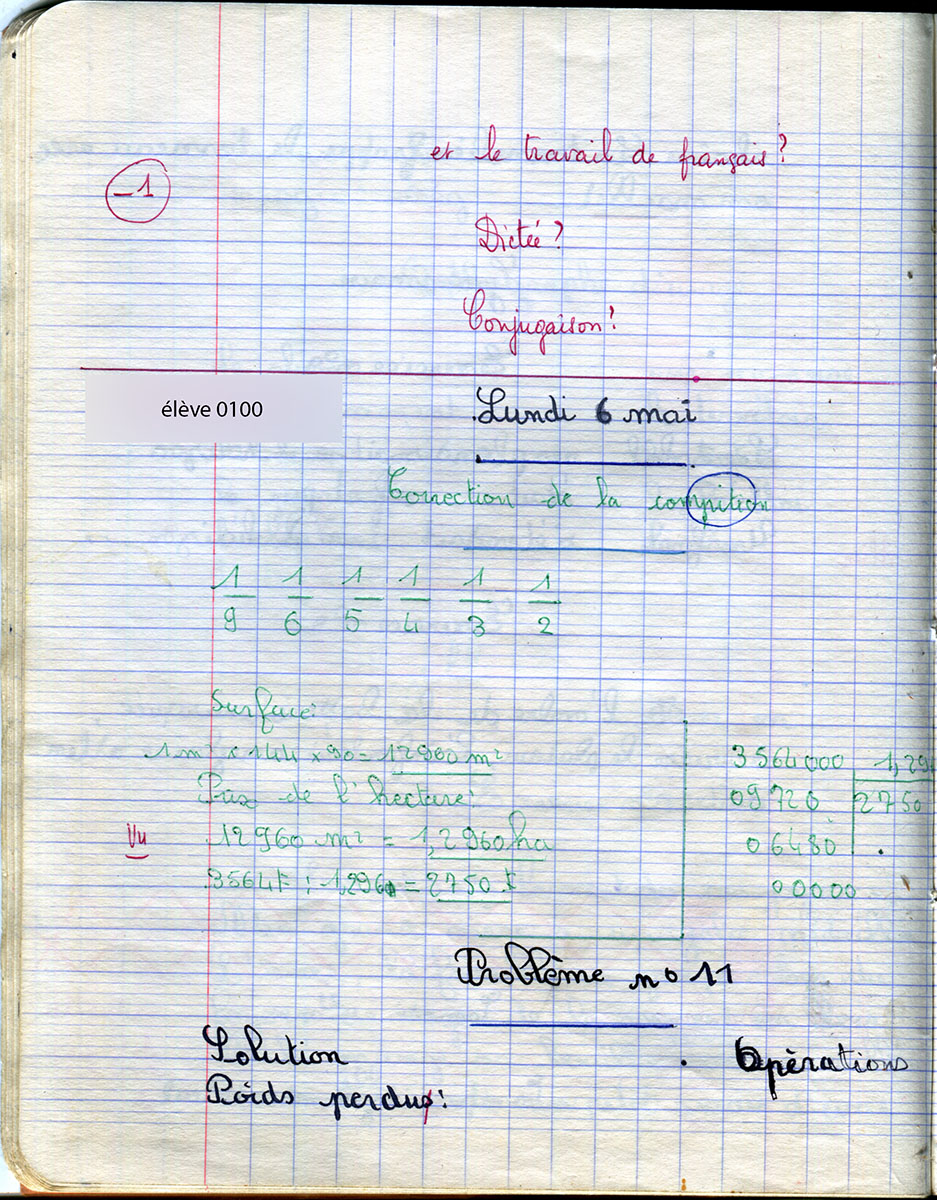 et le travail de français?
-1
Dictée?
Conjugaison!
élève 0100
Lundi 6 mai
Correction de la compition
1 1 1 1 1 1
9 6 5 4 3 2
Surface:
1 m² x 144 x 90 = 12960 m²
Prix de l'hectare:
Vu
12960 m² = 1,2960 ha
3564F : 1,2960 = 2750 F
3564000 1,29
09720 2750
06480
00000
Problème no 11
Solution
Opèrations
Poids perdus: